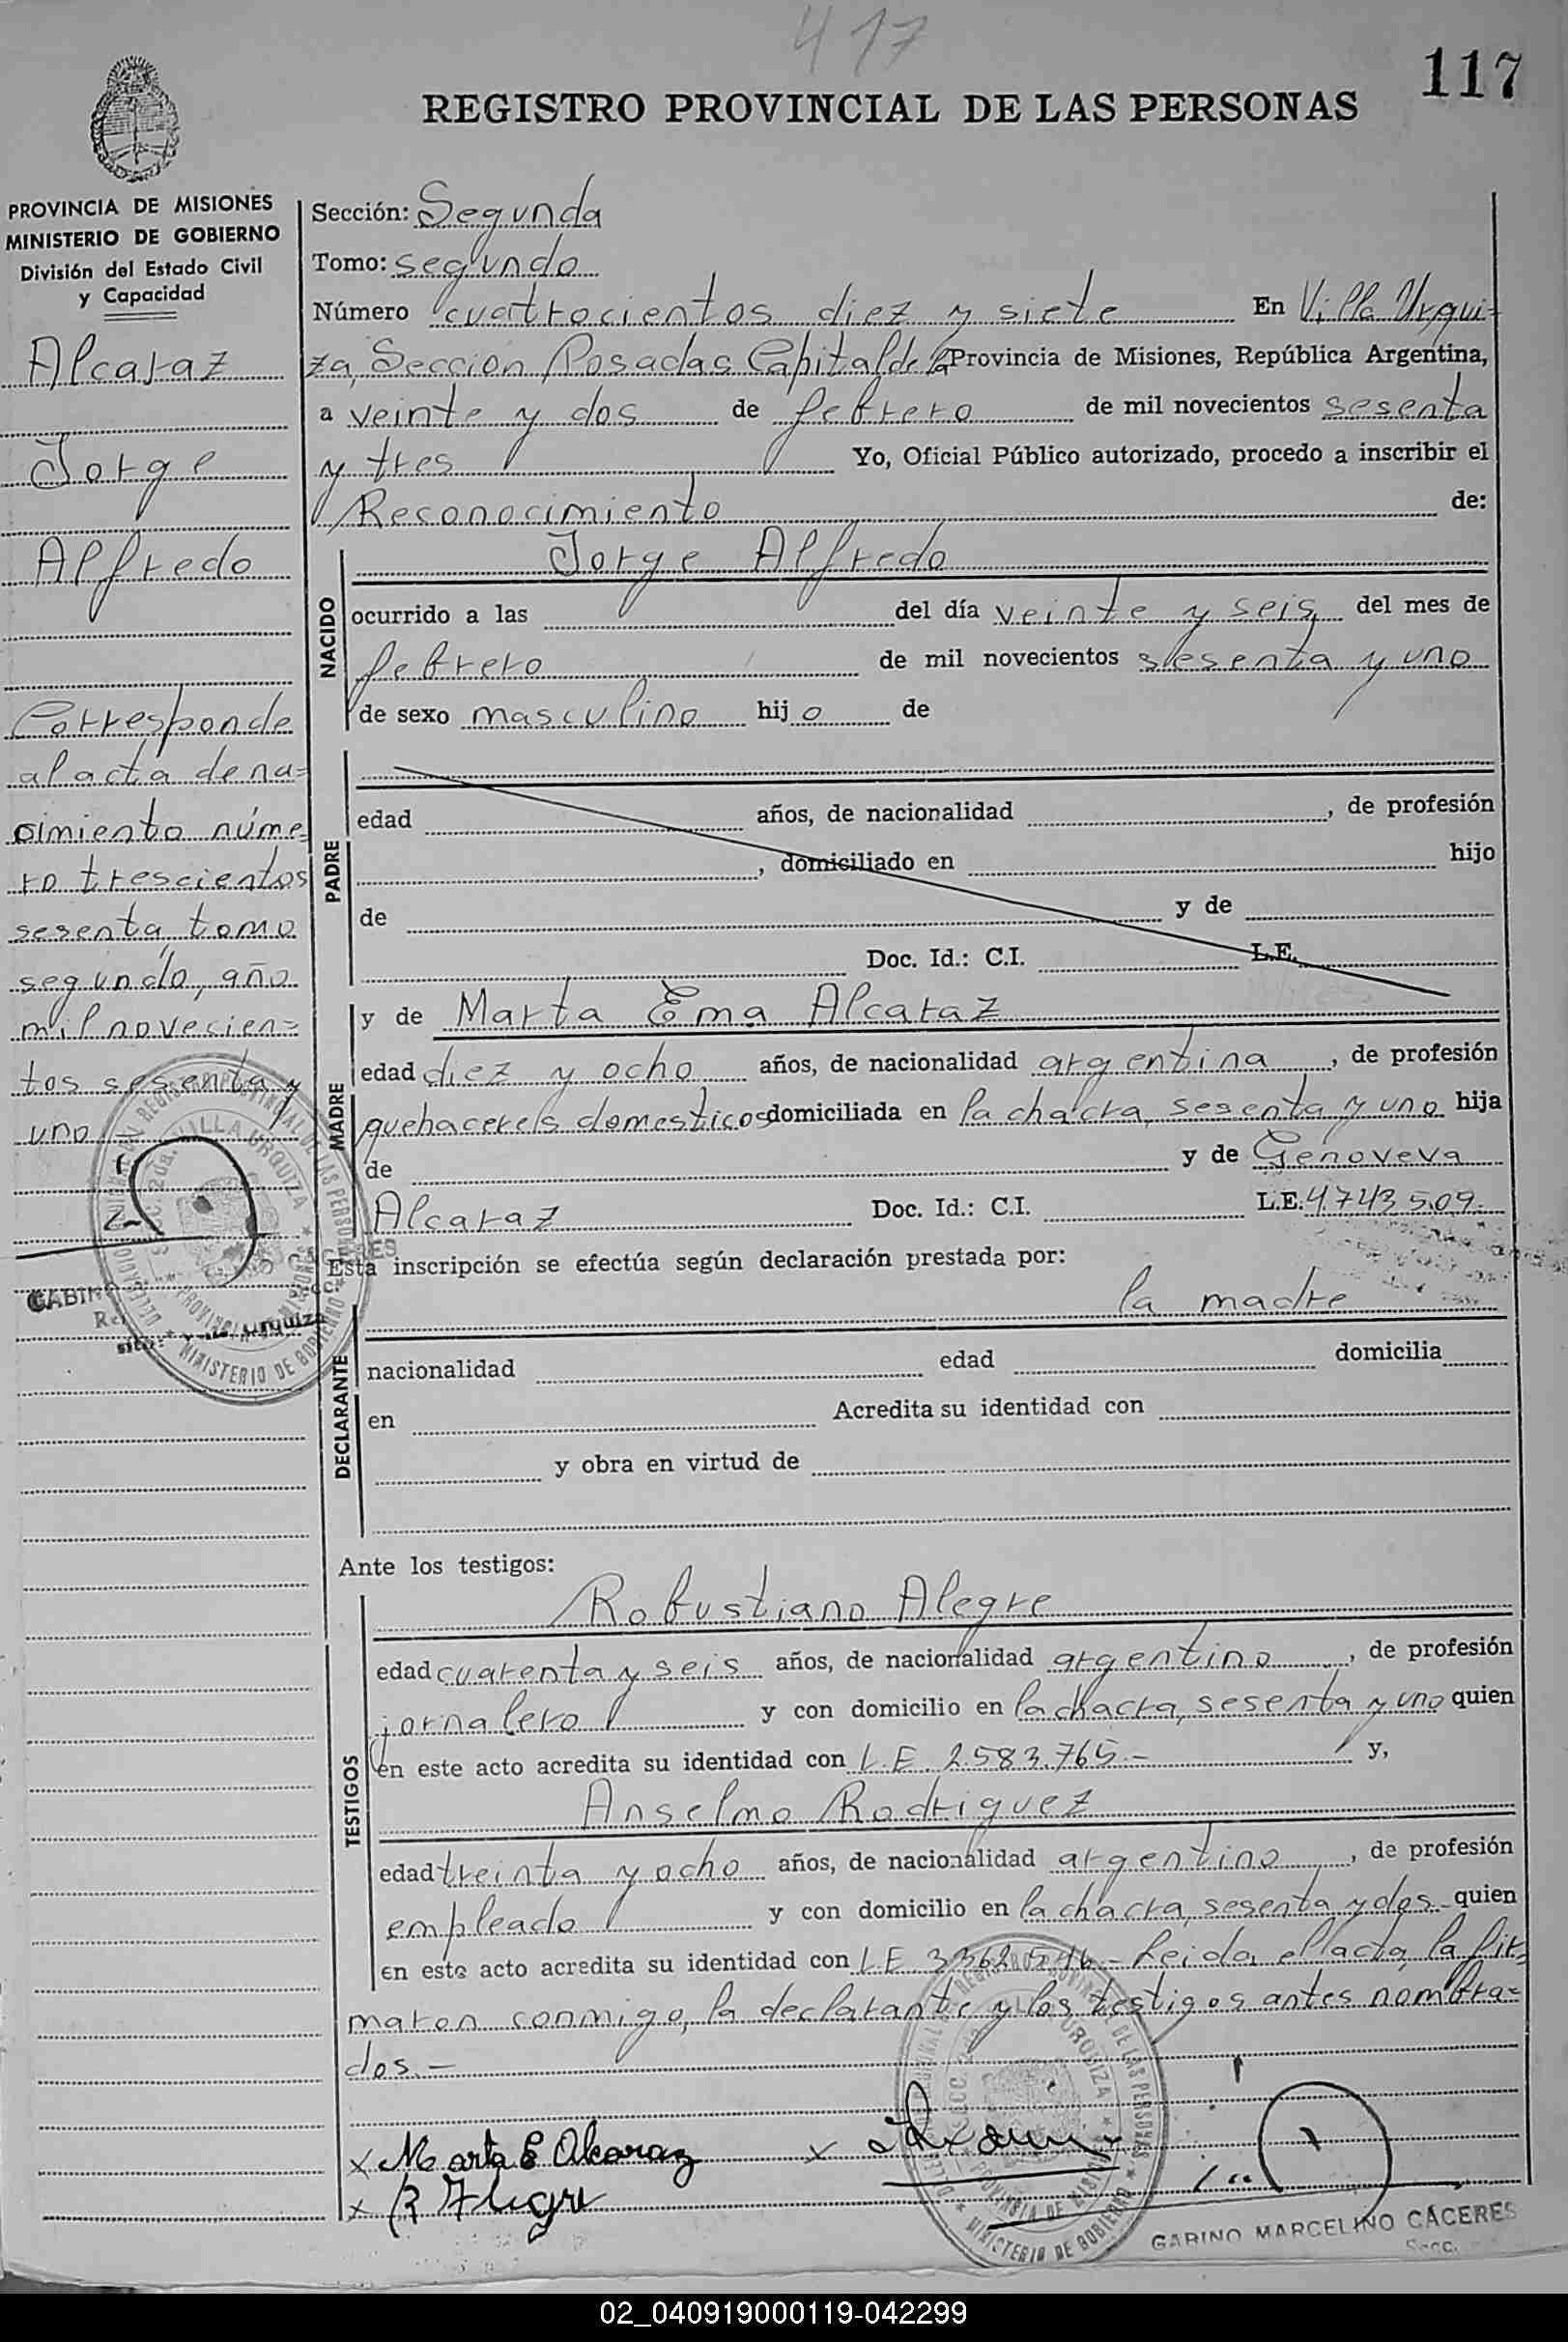 417
117
REGISTRO PROVINCIAL DE LAS PERSONAS
PROVINCIA DE MISIONES
MINISTERIO DE GOBIERNO
División del Estado Civil
y Capacidad
Alcaraz
Jorge
Alfredo
Corresponde
al acta de na=
cimiento núme
ro trescientos
sesenta, tomo
segundo, año
mil novecien=
tos sesenta y
uno
Sección: Segunda
Tomo: segundo
Número cuatrocientos diez y siete En Villa Urqui=
za, Seccion Posadas Capital de la Provincia de Misiones, República Argentina,
a veinte y dos de febrero de mil novecientos sesenta
y tres Yo, Oficial Público autorizado, procedo a inscribir el
Reconocimiento de:
NACIDO
Jorge Alfredo
ocurrido a las del día veinte y seis del mes de
febrero de mil novecientos sesenta y uno
de sexo masculino hijo de
PADRE
edad años, de nacionalidad , de profesión
, domiciliado en hijo
de y de
Doc. Id.: C.I. L.E.
MADRE
y de Marta Ema Alcaraz
edad diez y ocho años, de nacionalidad argentina, de profesión
quehaceres domesticos domiciliada en la chacra, sesenta y uno hija
de y de Genoveva
Alcaraz Doc. Id.: C.I. L.E. 4.743.509.-
Esta inscripción se efectúa según declaración prestada por:
la madre
DECLARANTE
nacionalidad edad domicilia
en Acredita su identidad con
y obra en virtud de
Ante los testigos:
TESTIGOS
Robustiano Alegre
edad cuarenta y seis años, de nacionalidad argentino, de profesión
jornalero y con domicilio en la chacra, sesenta y uno quien
en este acto acredita su identidad con L.E 2.583.765.- y,
Anselmo Rodriguez
edad treinta y ocho años, de nacionalidad argentino, de profesión
empleado y con domicilio en la chacra, sesenta y dos quien
en este acto acredita su identidad con L.E Leida el acta, la fir=
maron conmigo, la declarante y los testigos antes nombra=
dos.-
x Marta E Alcaraz x
x R Alegre
GABINO MARCELINO CACERES
02_040919000119-042299